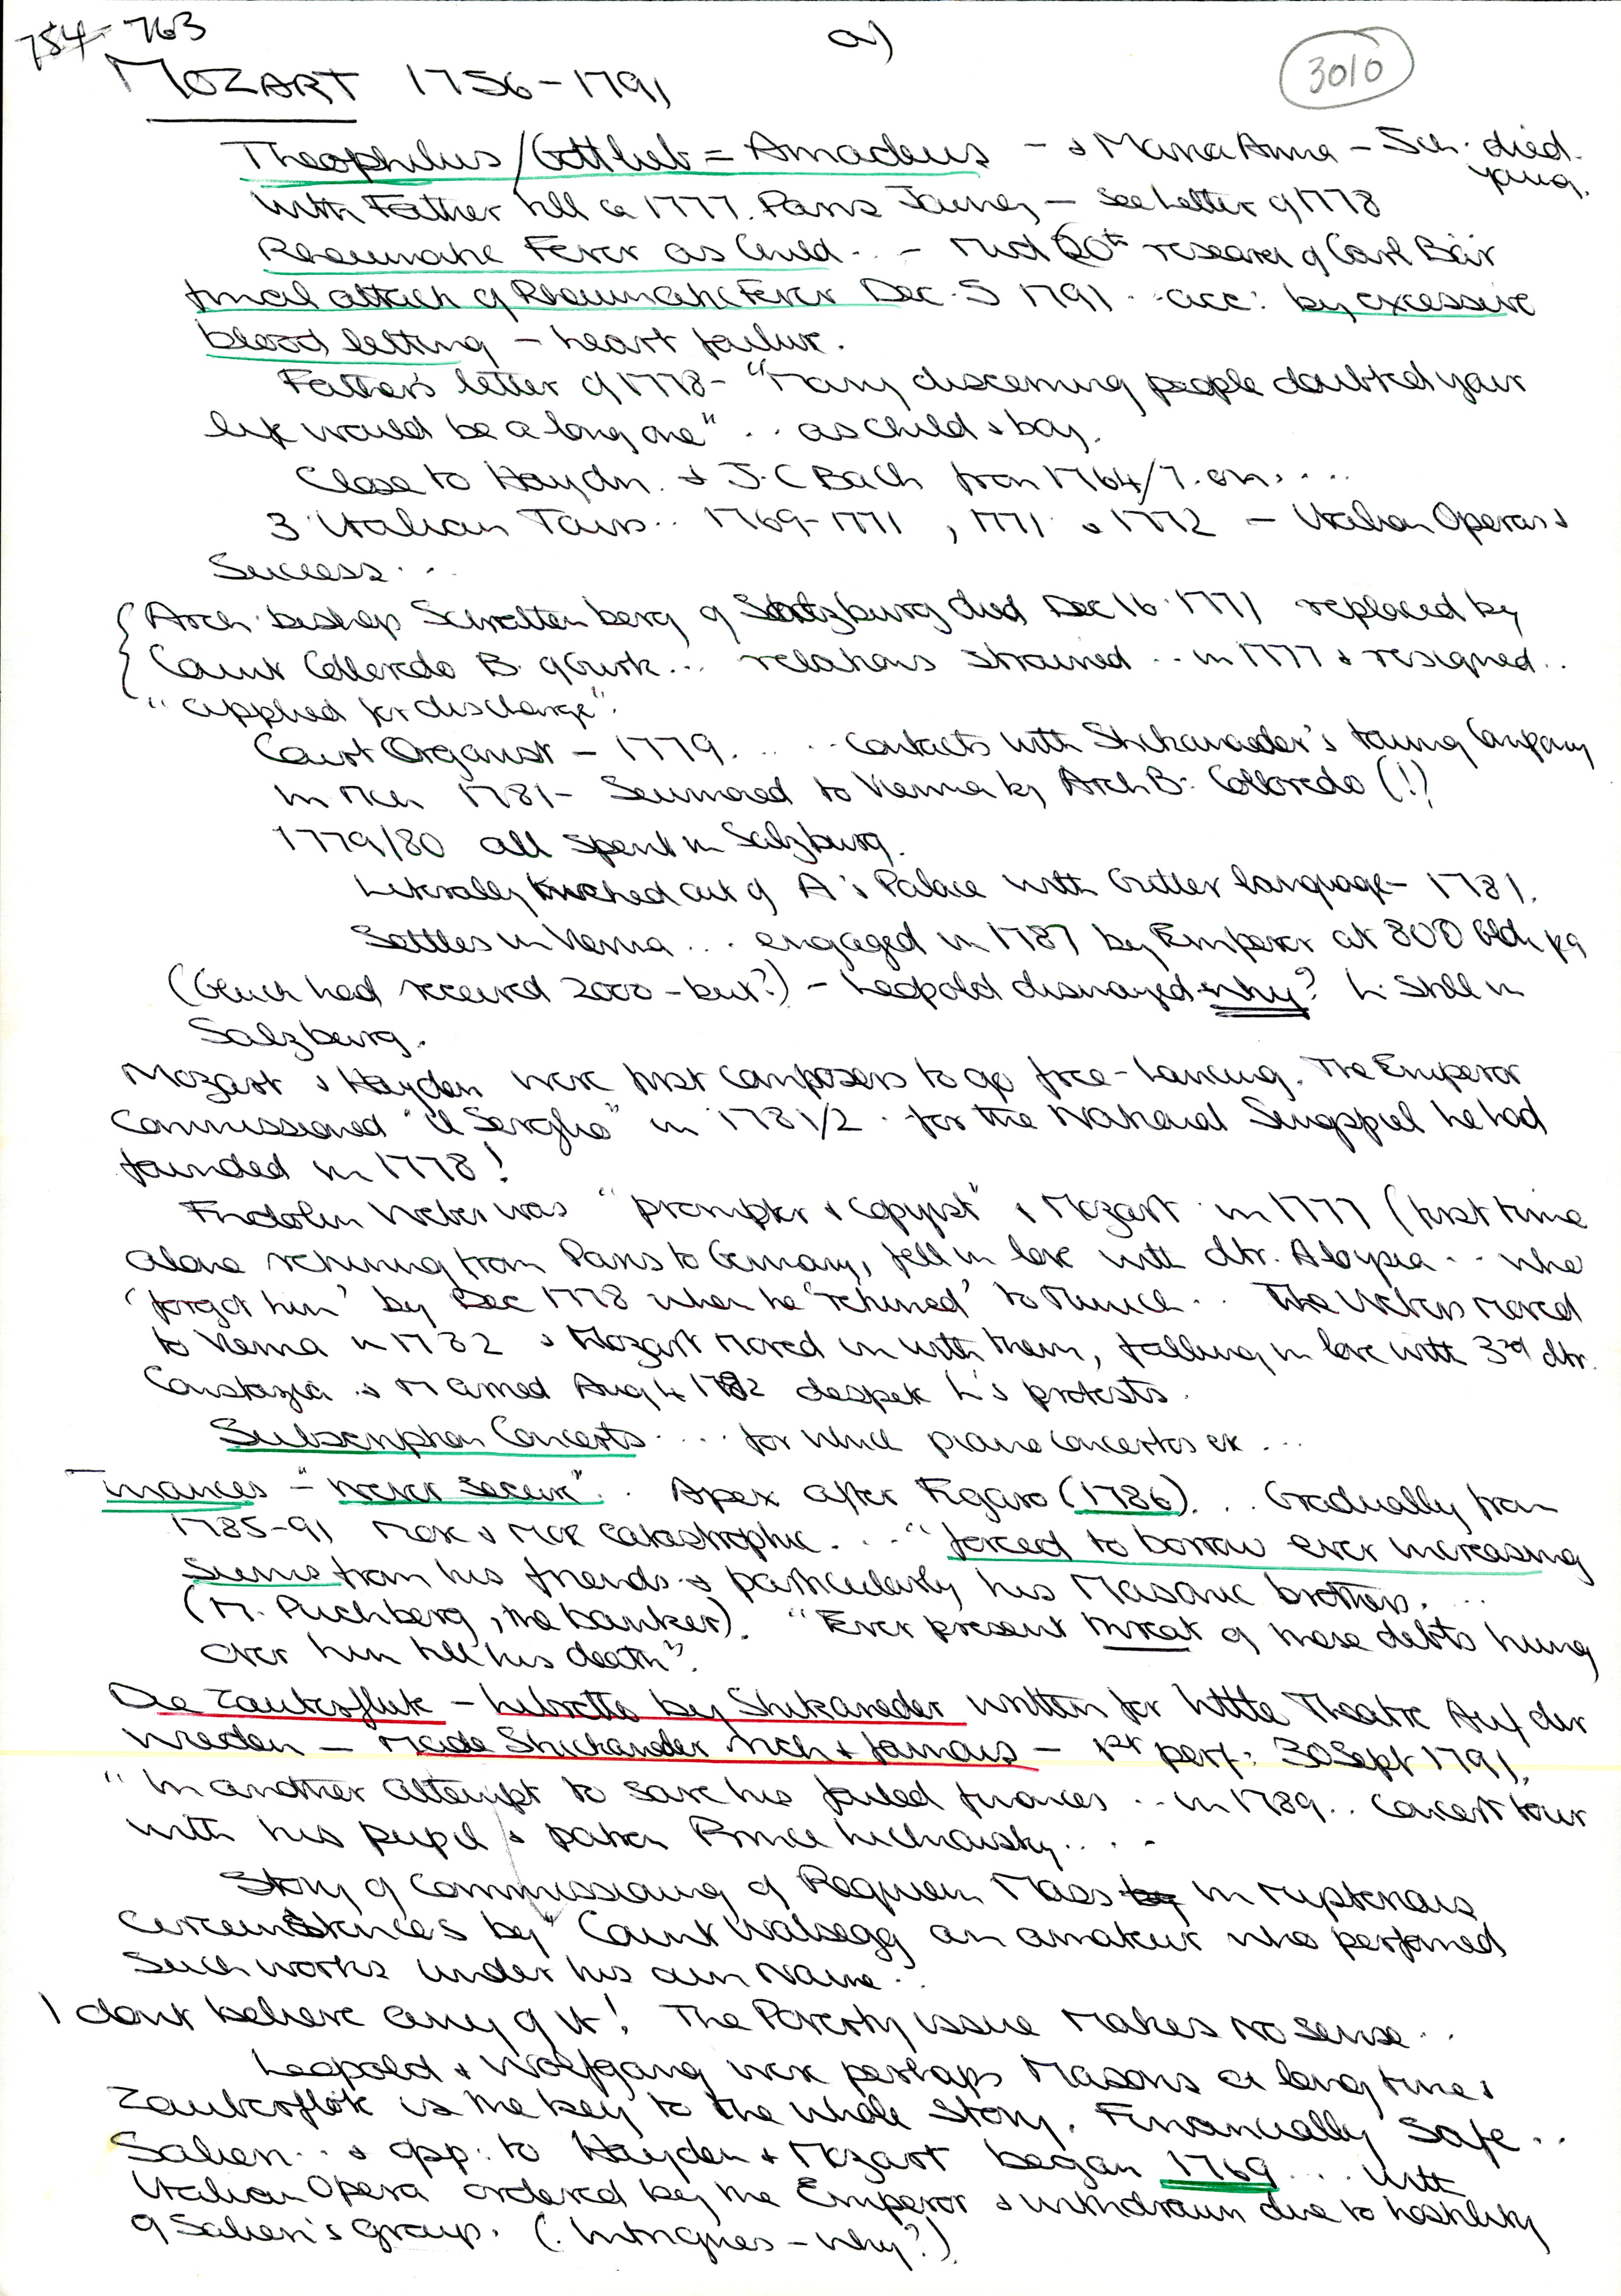 754-763
a)
3010
MOZART 1756-1791
Theophilus/Gottlieb = Amadeus - & Maria Anna - Sch. died young.
With Father till ca 1777. Paris Journey - see Letter of 1778
Rheumatic Fever as Child.. - Mid 20th research of Carl Bär
final attack of Rheumatic Fever Dec. 5 1791.. acc: by excessive
blood letting - heart failure.
Father's letter of 1778 - "Many discerning people doubted your
life would be a long one" .. as child & boy.
Close to Haydn. & J.C Bach from 1764/7. on....
3 Italian Tours.. 1769-1771, 1771 & 1772 - Italian Operas &
Success...
Arch.bishop Schrattenberg of Salzburg died Dec 16. 1771 replaced by
Count Colleredo B. of Gurk... relations strained .. in 1777 & resigned..
"applied for discharge".
Court Organist - 1779. .... contacts with Shikaneder's touring Company
In Mch 1781 - Summoned to Vienna by ArchB: Colloredo (!)
1779/80 all spent in Salzburg.
Literally kicked out of A's Palace with Gutter language - 1781.
Settles in Vienna ... engaged in 1787 by Emperor at 800 Gldn pa
(Gluck had received 2000 - but?) - Leopold dismayed why? L. still in
Salzburg.
Mozart & Hayden were first composers to go free-lancing. The Emperor
Commissioned "Il Seraglio" in 1781/2. for the National Singspiel he had
founded in 1778!
Fridolin Weber was "prompter & copyist" & Mozart in 1777 (first time
alone returning from Paris to Germany, fell in love with dtr. Aloysia .. who
'forgot him' by Dec 1778 when he 'returned' to Munich.. The Webers moved
to Vienna in 1782 & Mozart moved in with them, falling in love with 3rd dtr.
Constazia & Married Aug 4 1782 despite L's protests.
Subscription Concerts.... for which piano concertos ex...
Finances - "Never Secure".. Apex after Figaro (1786)... Gradually from
1785-91 more & more catastrophic... "forced to borrow ever increasing
sums from his friends & particularly his Masonic brothers....
(M. Puchberg, the banker). "Ever present threat of these debts hung
over him till his death".
Die Zauberflute - Libretto by Shikaneder written for little Theatre Auf der
Wieden - Made Shickander rich & famous - 1st perf: 30 Sept 1791.
"In another attempt to save his failed finances .. in 1789.. Concert tour
with his pupil & patron Prince Lichnowsky....
Story of Commissioning of Requiem Mass by in mysterious
circumstances by "Count Walsegg an amateur who performed
such works under his own name..
I don't believe any of it! The Poverty issue makes no sense...
Leopold & Wolfgang were perhaps Masons a long time &
Zauberflöte is the key to the whole story. Financially safe..
Salieri.. & opp: to Hayden & Mozart began 1769... with
Italian Opera ordered by the Emperor & withdrawn due to hostility
of Salieri's group. (. Intrigues - why?)